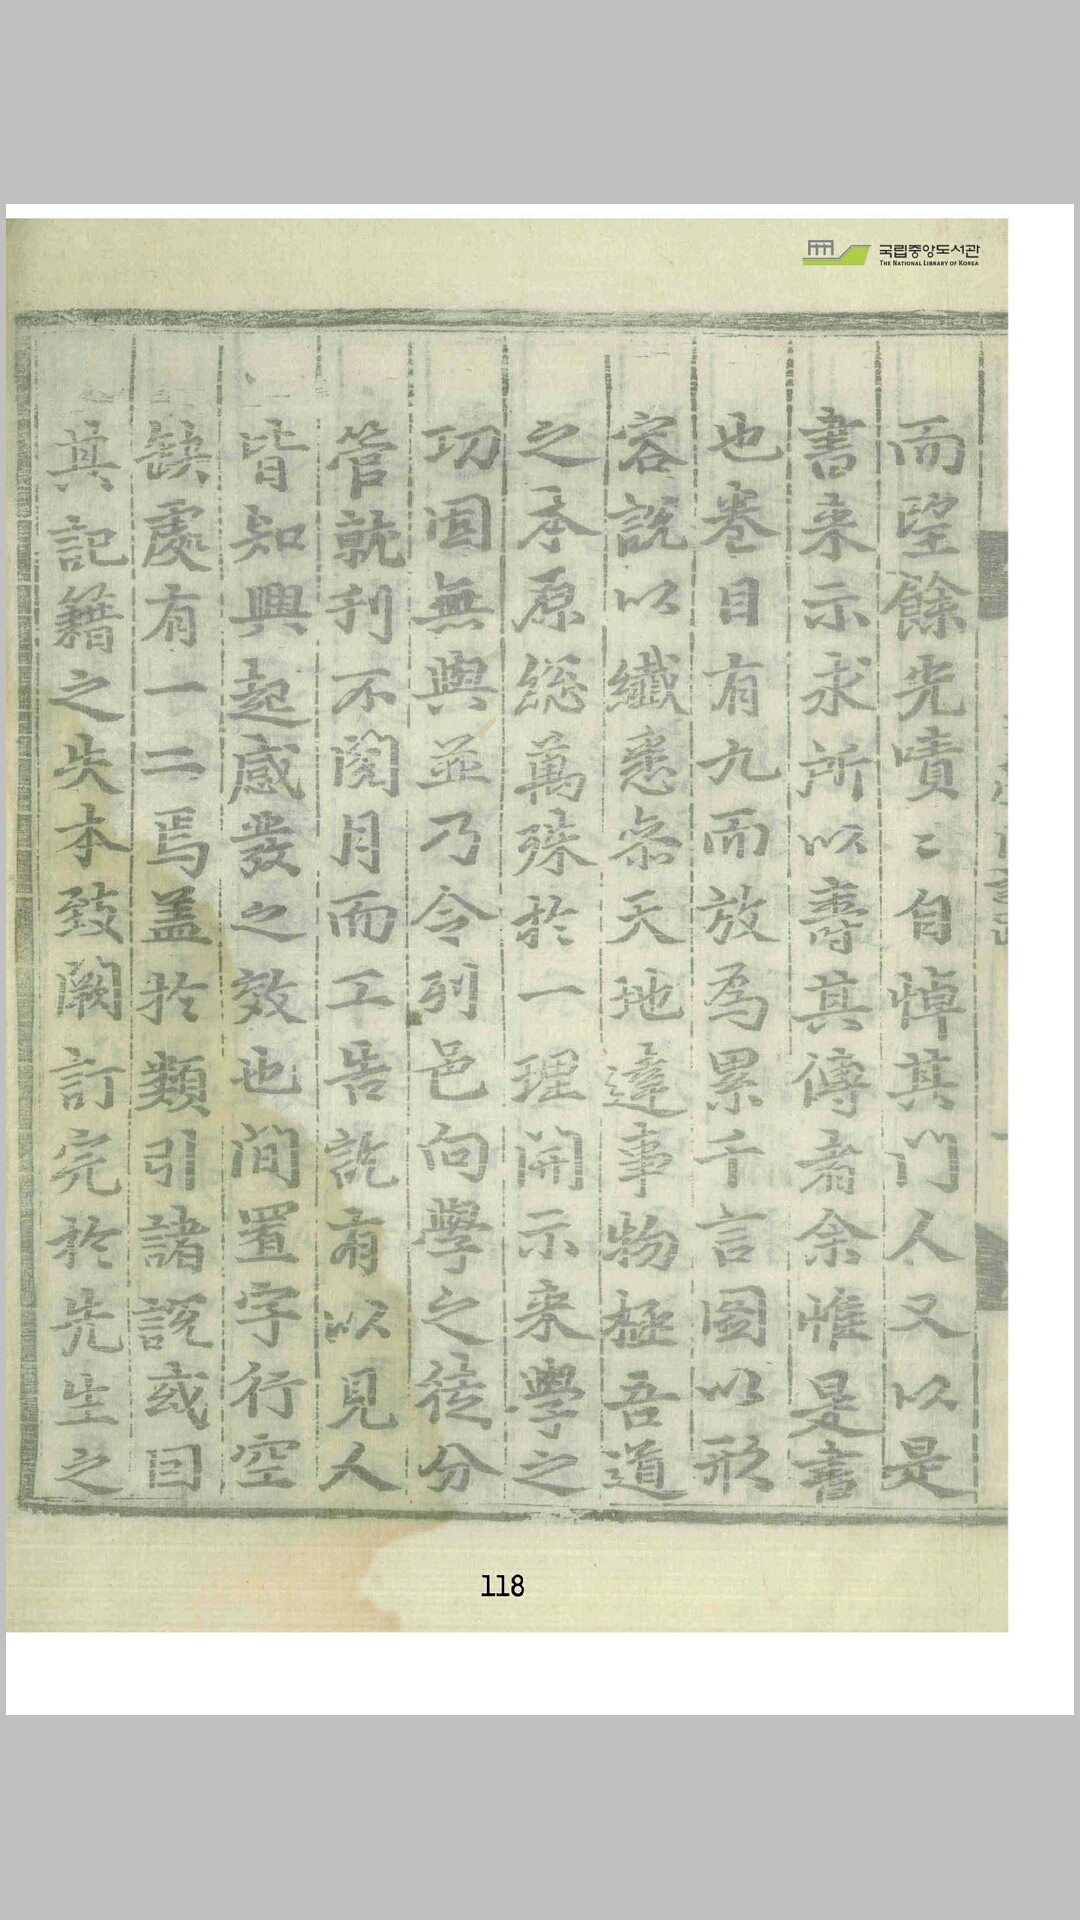 국립중앙도서관
THE NATIONAL LIBRARY OF KOREA
而望餘光嘖〻自悼其門人又以是
書来示求所以壽其傳者余惟是書
也卷目有九而放爲累千言圖以形
容說以纖悉叅天地達事物極吾道
之本原総萬殊於一理開示来學之
功固無與並乃令列邑向學之徒分
管就刊不閱月而工告訖有以見人
皆知興起感發之效也間置字行空
缺處有一二焉盖於類引諸說或因
其記籍之失本致闕訂完於先生之
118